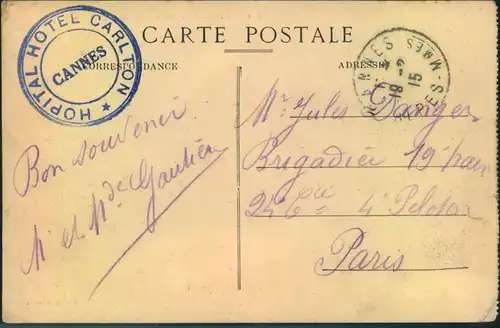 CARTE POSTALE
CORRESPONDANCE
ADRESSE
HOPITAL HOTEL CARLTON
CANNES
CANNES
18-2
15
ALPES-MMES
Bon souvenir
Mr et Mde Gautier
Mr Jules Danger
Brigadier 19e
24e Cie 4e Peloton
Paris